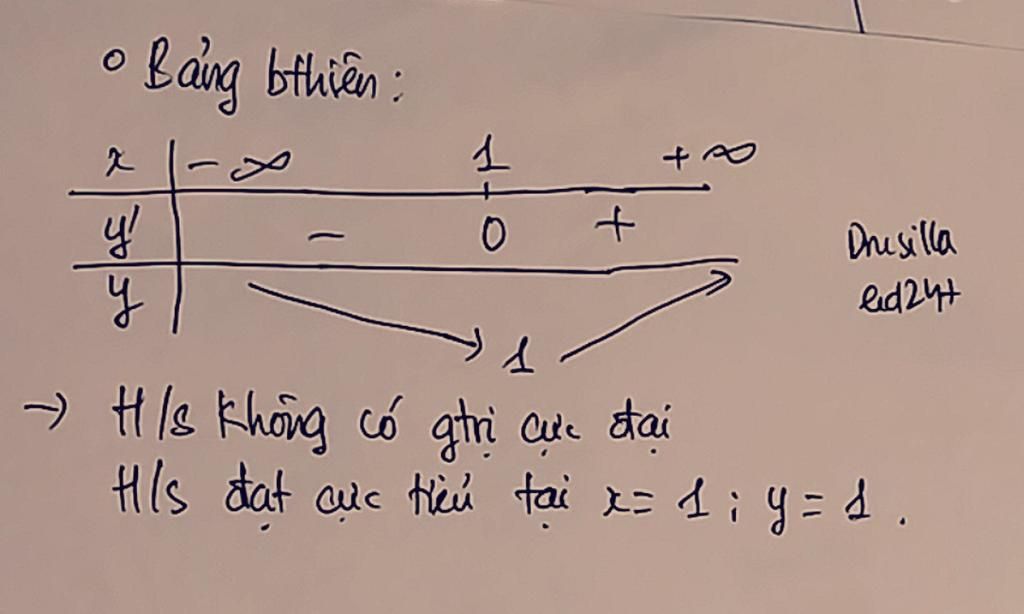 o Bảng bthiên:
x | -∞ 1 +∞
y' - 0 +
y 1
Drusilla
eid24t
→ H/s không có gtrị cực đại
H/s đạt cực tiểu tại x = 1 ; y = 1 .